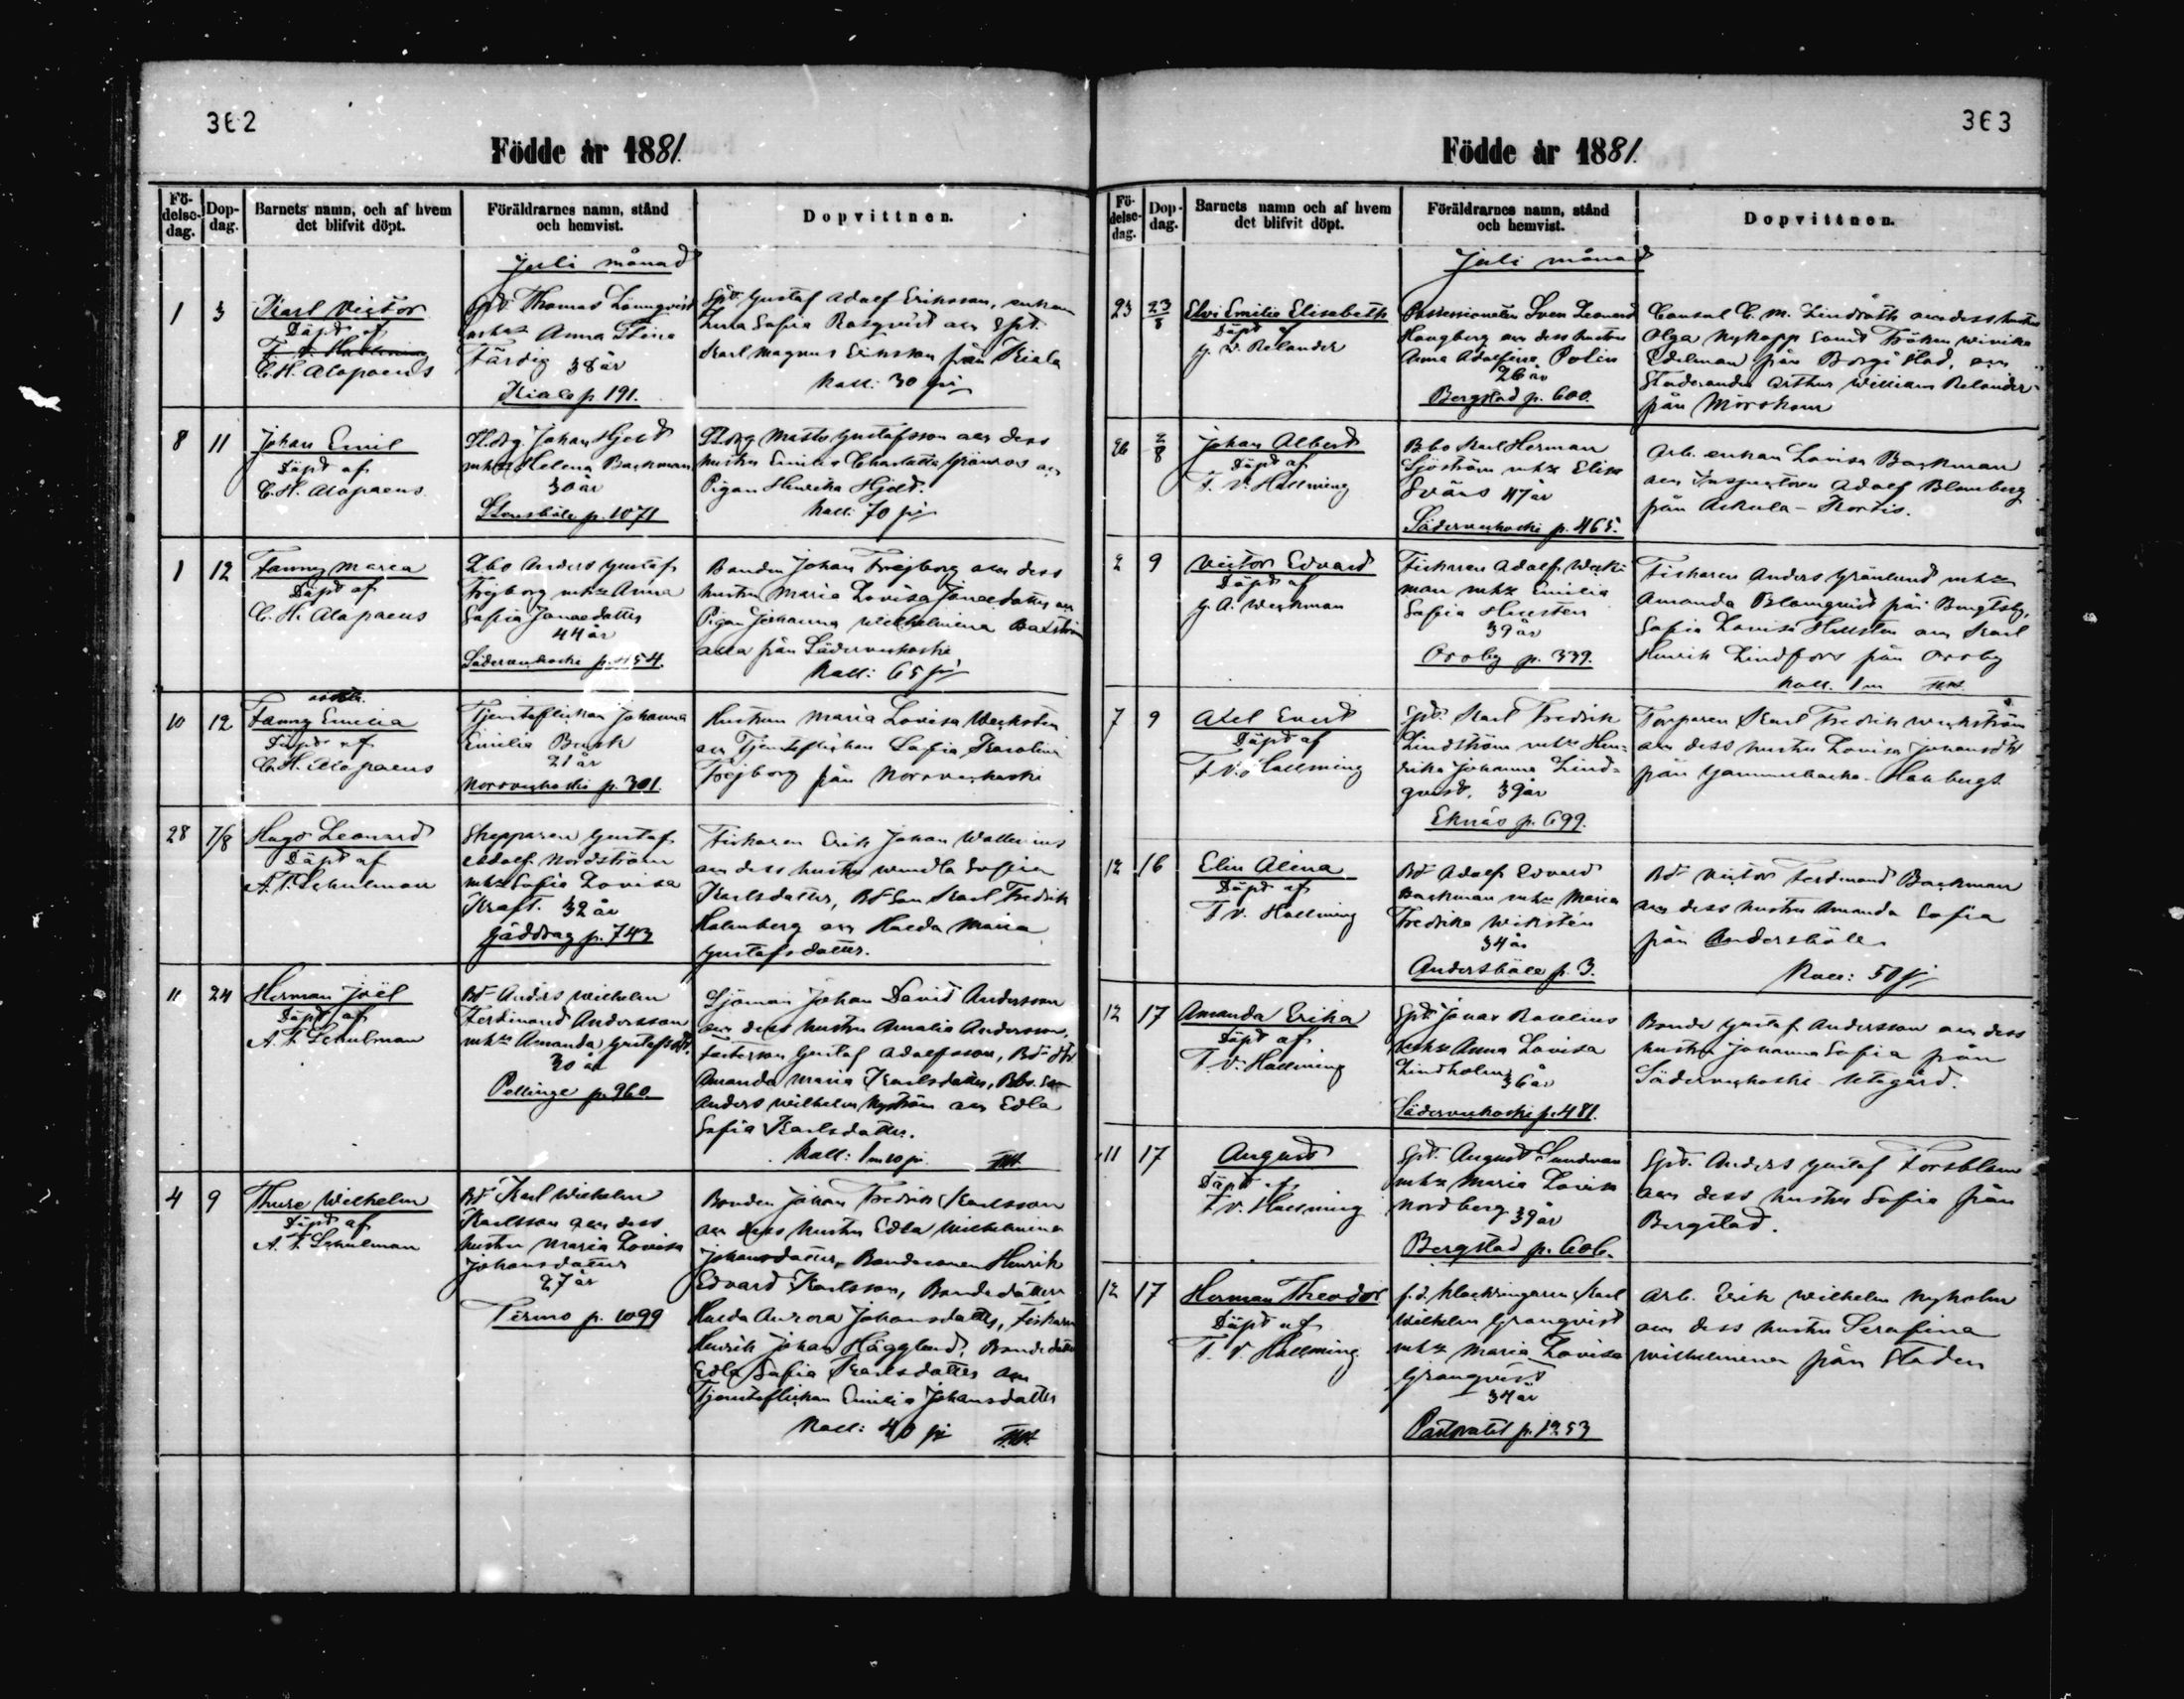 362
Födde år 1881.
Födelsedag.
Dopdag.
Barnets namn, och af hvem det blifvit döpt.
Föräldrarnes namn, stånd och hemvist.
Dopvittnen.
Juli månad
1
3
Karl Victor
Döpt af
C. H. Alopaeus
Thomas Lönnqvist
Anna Stina
Färdig 38 år
Kiala p. 191.
Gustaf Adolf Eriksson, enkan
Sofia Rosqvist
Karl Magnus Eriksson från Kiala
Koll: 30 pi
8
11
Johan Emil
Döpt af
C. H. Alopaeus
Johan Hjelt
Helena Backman
30 år
Stensböle p. 1071
Gustafsson och dess
hustru Emilia Charlotta Grönroos och
Pigan Henrika Hjelt.
Koll: 70 pi
1
12
Fanny Maria
Döpt af
C. H. Alopaeus
Anders Gustaf
Fröjborg mhu Anna
Sofia Jonaedotter
44 år
Södervekoski p. 454.
Bonden Johan Fröjborg och dess
hustru Maria Lovisa Jonaedotter och
Pigan Johanna Wilhelmina
alla från Södervekoski
Koll: 65 pi
10
12
Fanny Emilia
Döpt af
C. H. Alopaeus
Tjensteflickan Johanna
Emilia
21 år
Norrvekoski p. 301.
Hustrun Maria Lovisa Weckstén
och Tjensteflickan Sofia Karolina
Fröjborg från Norrvekoski
28
7/8
Hugo Leonard
Döpt af
A. F. Schulman
Skepparen Gustaf
Adolf Nordström
mhu Sofia Lovisa
Kraft. 32 år
Gäddrag p. 743
Fiskaren Erik Johan Wallenius
och dess hustru Wendla Sofia
Karlsdotter, Karl Fredrik
Holmberg och Hulda Maria
Gustafsdotter.
11
24
Herman Joël
Döpt af
A. F. Schulman
Bd Anders Wilhelm
Ferdinand Andersson
mhu Amanda Gustafsdtr.
30 år
Pellinge p. 960.
Sjöman Johan David Andersson
och dess hustru Amalia Andersson,
Gustaf Adolfsson,
Amanda Maria Karlsdotter,
Anders Wilhelm Nyström och Edla
Sofia Karlsdotter.
Koll: 1 m 10 pi.
4
9
Thure Wilhelm
Döpt af
A. F. Schulman
Bd Karl Wilhelm
Karlsson och dess
hustru Maria Lovisa
Johansdotter
27 år
Pirmo p. 1099
Bonden Johan Fredrik Karlsson
och dess hustru Edla Wilhelmina
Johansdotter, Bondesonen Henrik
Edvard Karlsson, Bondedottern
Hulda Aurora Johansdotter, Fiskaren
Henrik Johan Hägglund, Bondedottern
Edla Sofia Karlsdotter och
Tjensteflickan Emilia Johansdotter
Koll: 40 pi
363
Födde år 1881.
Födelsedag.
Dopdag.
Barnets namn och af hvem det blifvit döpt.
Föräldrarnes namn, stånd och hemvist.
Dopvittnen.
Juli månad
23
23/8
Elvi Emilia Elisabeth
Döpt af
Relander
Possessionaten Sven Leonard
Hougberg och dess hustru
Anna Adolfina Polén
26 år
Bergstad p. 600.
Consul C. M. Lindroth och dess hustru
Olga Nykopp samt Fröken
Edelman från Borgå stad, och
Studeranden Arthur William Relander
från Mörskom
26
2/8
Johan Albert
Döpt af
F. V. Hallming
Bbo Karl Herman
Sjöström mhu Elisa
Svärs 47 år
Södervekoski p. 465.
Arb. enkan Lovisa Backman
och Inspektoren Adolf Blomberg
från Askola - Kortis.
2
9
Victor Edvard
Döpt af
Weckman
Fiskaren Adolf Weckman
mhu Emilia
Sofia Hellstén
39 år
Orrby p. 339.
Fiskaren Anders Grönlund mhu
Amanda Blomqvist från
Sofia Lovisa Hellstén och Karl
Henrik Lindfors från Orrby
Koll. 1 m
7
9
Axel Evert
Döpt af
F. V. Hallming
Karl Fredrik
Lindström mhu Hendrika
Johanna Lindqvist.
39 år
Eknäs p. 699.
Torparen Karl Fredrik Weckström
och dess hustru Lovisa Johansdtr
från Gammelbacka
12
16
Elin Alina
Döpt af
F. V. Hallming
Bd Adolf Edvard
Backman mhu Maria
Fredrika Wikstén
34 år
Andersböle p. 3.
Bd Victor Ferdinand Backman
och dess hustru Amanda Sofia
från Andersböle
Koll: 50 pi
12
17
Amanda Erika
Döpt af
F. V. Hallming
Jonas Roselius
mhu Anna Lovisa
Lindholm
36 år
Södervekoski p. 481.
Bonde Gustaf Andersson och dess
hustru Johanna Sofia från
Södervekoski
11
17
August
Döpt af
F. V. Hallming
August Sundman
mhu Maria Lovisa
Nordberg 39 år
Bergstad p. 606.
Anders Gustaf Forsblom
och dess hustru Sofia från
Bergstad.
12
17
Herman Theodor
Döpt af
F. V. Hallming
f.d. Klockringaren Karl
Wilhelm Granqvist
mhu Maria Lovisa
Granqvist
34 år
Pastoratet p. 1253
Arb. Erik Wilhelm Nyholm
och dess hustru Serafina
Wilhelmina från Staden